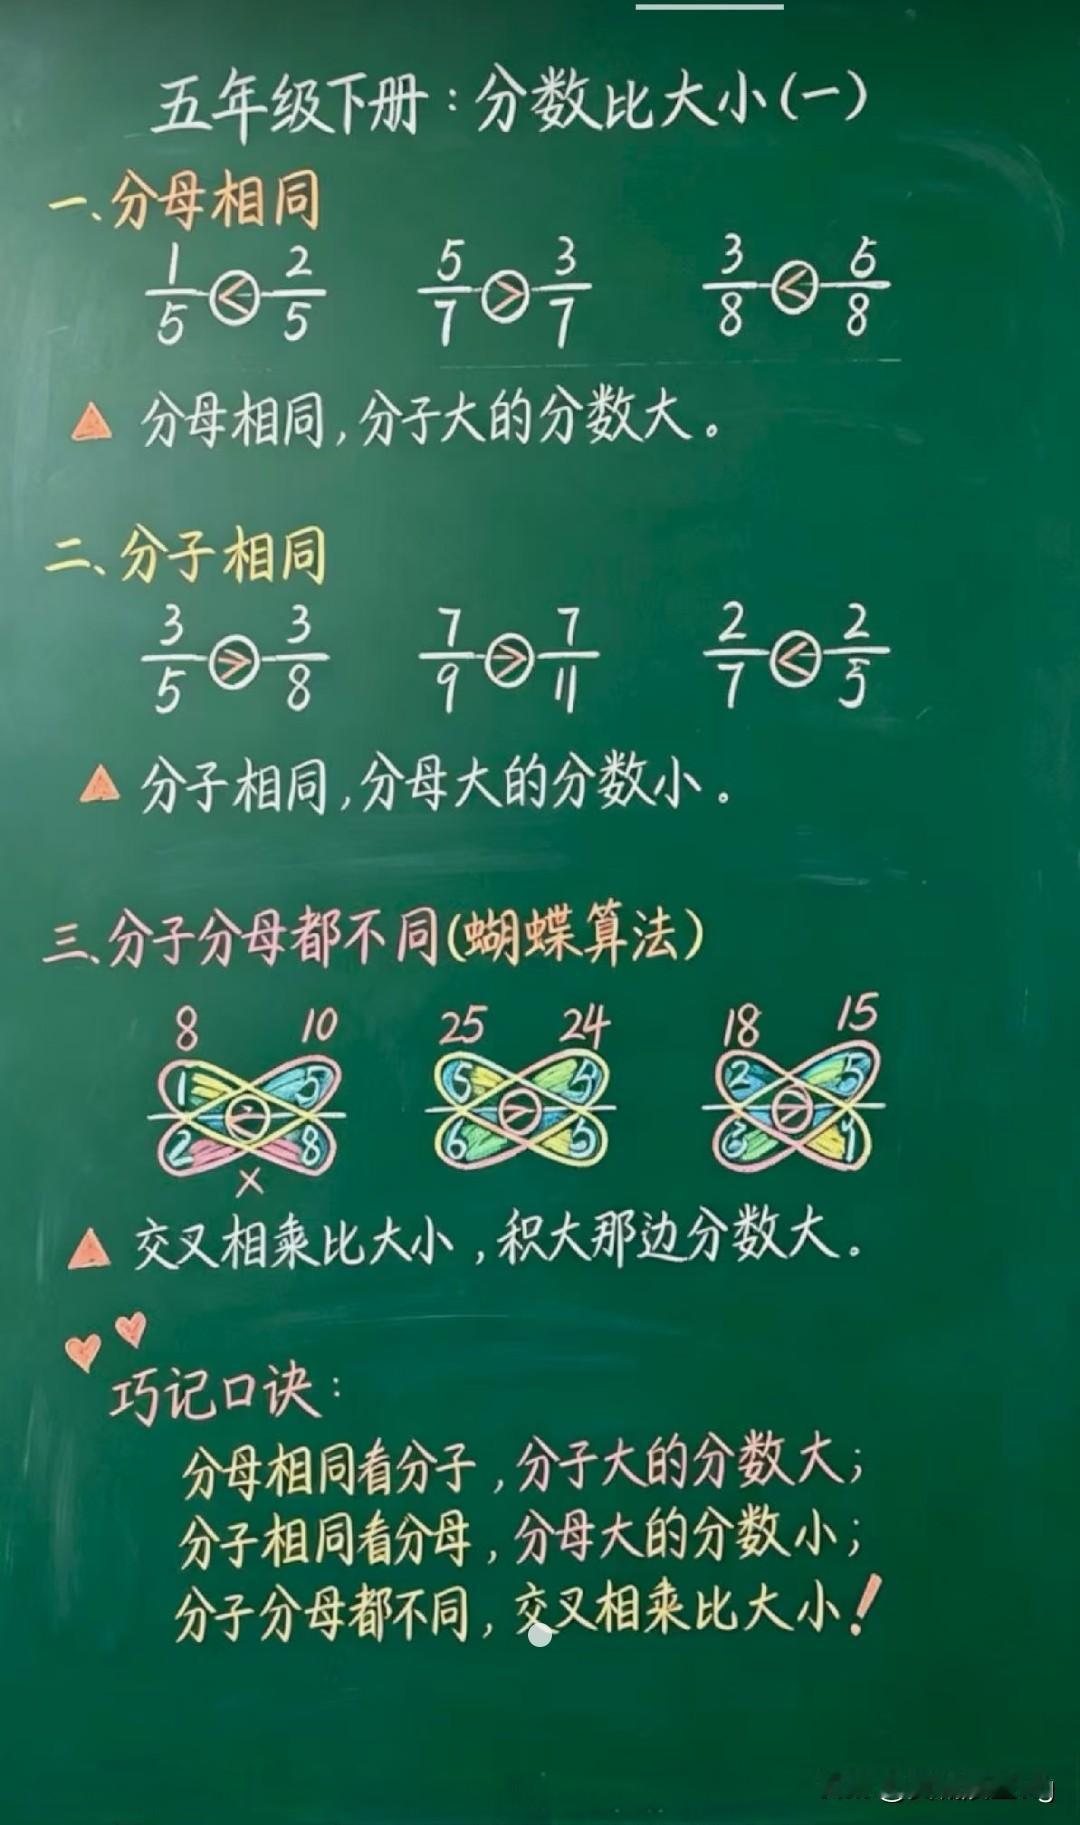 五年级下册：分数比大小(一)
一、分母相同
1/5 < 2/5 5/7 > 3/7 3/8 < 5/8
▲ 分母相同,分子大的分数大。
二、分子相同
3/5 > 3/8 7/9 > 7/11 2/7 < 2/5
▲ 分子相同,分母大的分数小。
三、分子分母都不同(蝴蝶算法)
8 10 25 24 18 15
1 5 5 4 2 5
2 8 6 5 3
×
▲ 交叉相乘比大小,积大那边分数大。
巧记口诀：
分母相同看分子,分子大的分数大;
分子相同看分母,分母大的分数小;
分子分母都不同,交叉相乘比大小!